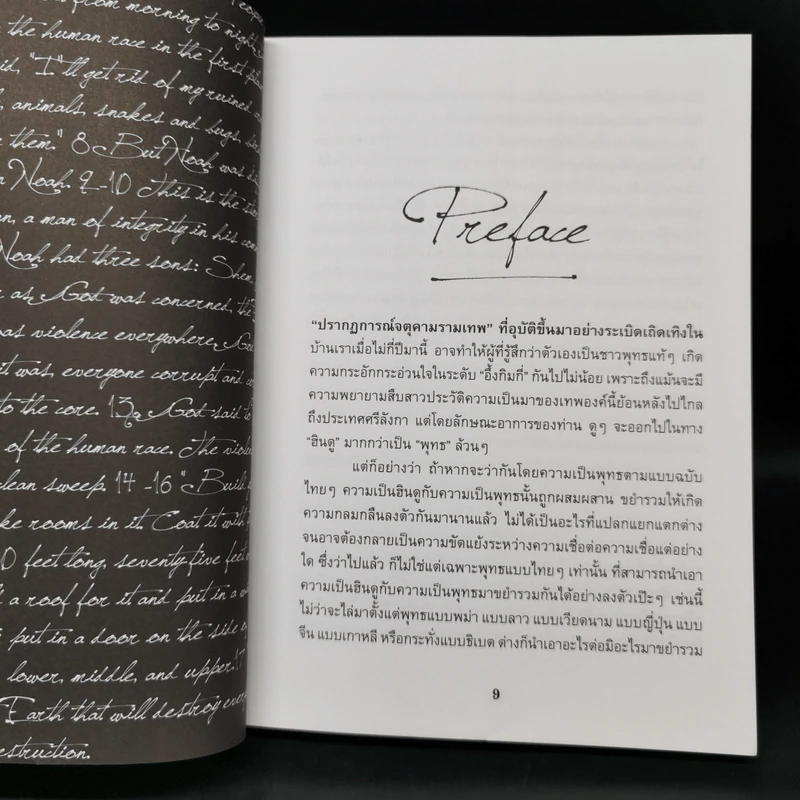 from morning to night
the human race in the first
"I'll get rid of my ruined
animals, snakes and bugs,
them." 8 But Noah was
Noah. 9-10 This is the
a man of integrity in his
Noah had three sons: Shem,
as God was concerned, the
was violence everywhere. God
it was, everyone corrupt and
to the core. 13 God said to
of the human race. The
clean sweep. 14-16 "Build
rooms in it. Coat it with
feet long, seventy-five feet
a roof for it and put in a
put in a door on the side
lower, middle, and upper. 17
Earth that will destroy
destruction.
Preface
"ปรากฏการณ์จตุคามรามเทพ" ที่อุบัติขึ้นมาอย่างระเบิดเถิดเทิงใน
บ้านเราเมื่อไม่กี่ปีมานี้ อาจทำให้ผู้ที่รู้สึกว่าตัวเองเป็นชาวพุทธแท้ๆ เกิด
ความกระอักกระอ่วนใจในระดับ "อึ้งกิมกี่" กันไปไม่น้อย เพราะถึงแม้นจะมี
ความพยายามสืบสาวประวัติความเป็นมาของเทพองค์นี้ย้อนหลังไปไกล
ถึงประเทศศรีลังกา แต่โดยลักษณะอาการของท่าน ดูๆ จะออกไปในทาง
"ฮินดู" มากกว่าเป็น "พุทธ" ล้วนๆ
แต่ก็อย่างว่า ถ้าหากจะว่ากันโดยความเป็นพุทธตามแบบฉบับ
ไทยๆ ความเป็นฮินดูกับความเป็นพุทธนั้นถูกผสมผสาน ขยำรวมให้เกิด
ความกลมกลืนลงตัวกันมานานแล้ว ไม่ได้เป็นอะไรที่แปลกแยกแตกต่าง
จนอาจต้องกลายเป็นความขัดแย้งระหว่างความเชื่อต่อความเชื่อแต่อย่าง
ใด ซึ่งว่าไปแล้ว ก็ไม่ใช่แต่เฉพาะพุทธแบบไทยๆ เท่านั้น ที่สามารถนำเอา
ความเป็นฮินดูกับความเป็นพุทธมาขยำรวมกันได้อย่างลงตัวเป๊ะๆ เช่นนี้
ไม่ว่าจะไล่มาตั้งแต่พุทธแบบพม่า แบบลาว แบบเวียดนาม แบบญี่ปุ่น แบบ
จีน แบบเกาหลี หรือกระทั่งแบบธิเบต ต่างก็นำเอาอะไรต่อมิอะไรมาขยำรวม
9